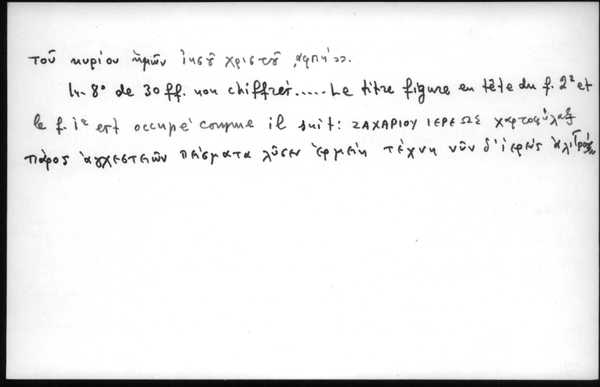 τοῦ κυρίου ἡμῶν ἰησοῦ χριστοῦ ͵αφπή››.
In-8° de 30 ff. non chiffrés..... Le titre figure en tête du f. 2ᵃ et
le f. 1ᵃ est occupé comme il suit: ΖΑΧΑΡΙΟΥ ΙΕΡΕΩΣ χαρτοφύλαξ
πάρος ἀγχιστειῶν πείσματα λῦσεν τέχνη νῦν δ' ἱερεὺς